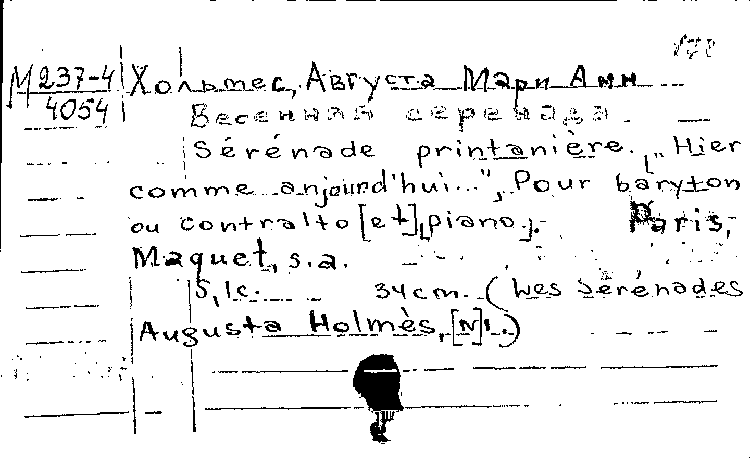 М 237-4
4054
Хольмес, Августа Мари Анн
Весенная серенада.
Sérénade printanière. „Hier
comme anjourd'hui...", Pour baryton
ou contralto [et] piano]. Paris,
Maquet, s.a.
5, 1c. 34 cm. (Les Sérénades
Augusta Holmès, [N]1.)